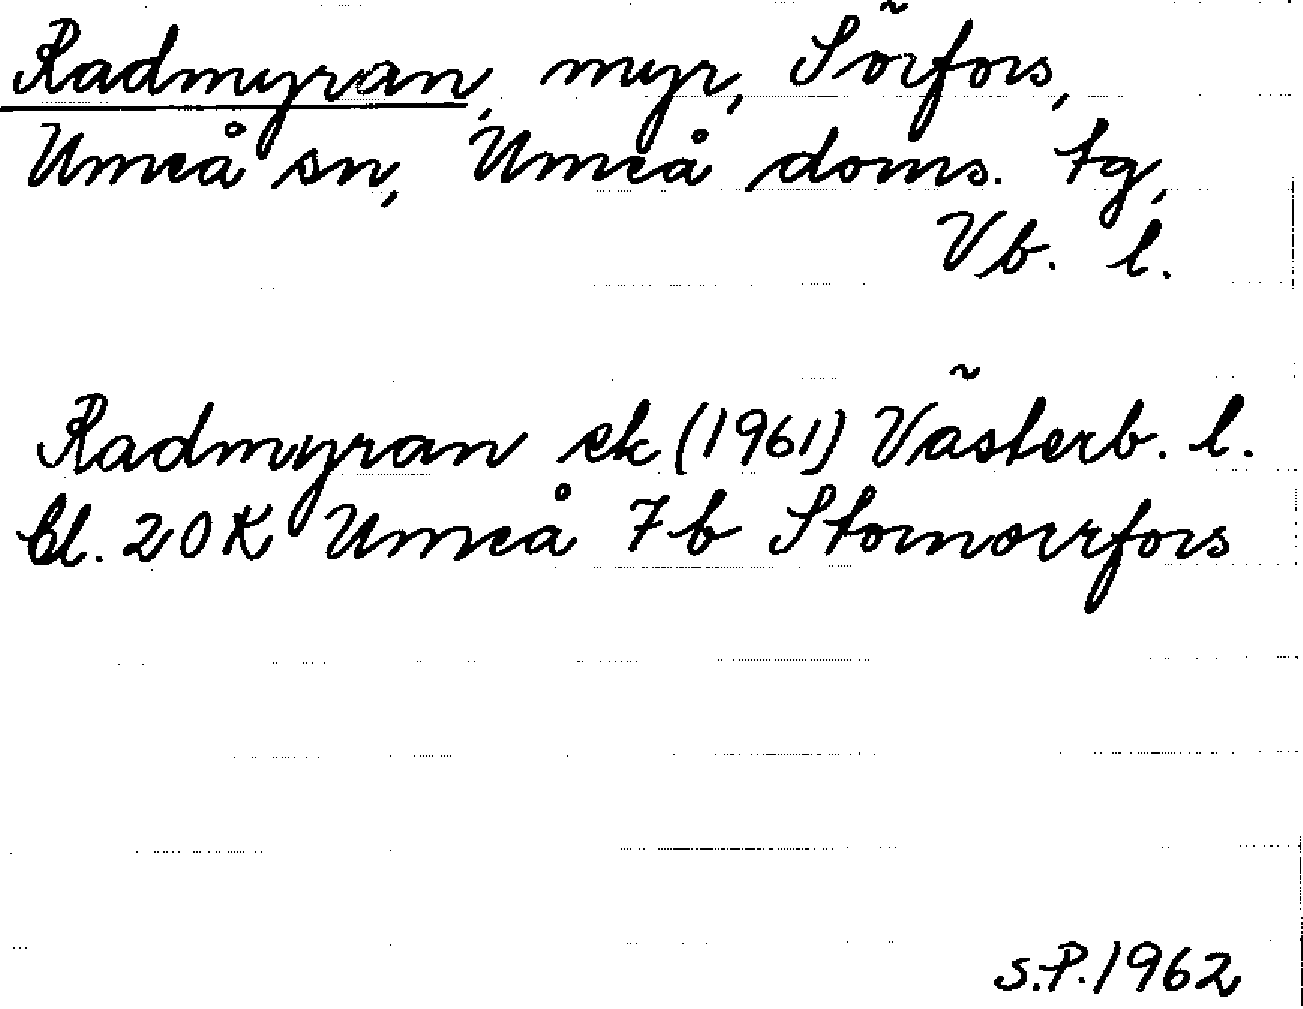 Radmyran, myr, Sörfors,
Umeå sn, Umeå doms. tg,
Vb. l.
Radmyran ek (1961) Västerb. l.
Bl. 20 K Umeå 7 b Stornorrfors
S.P. 1962